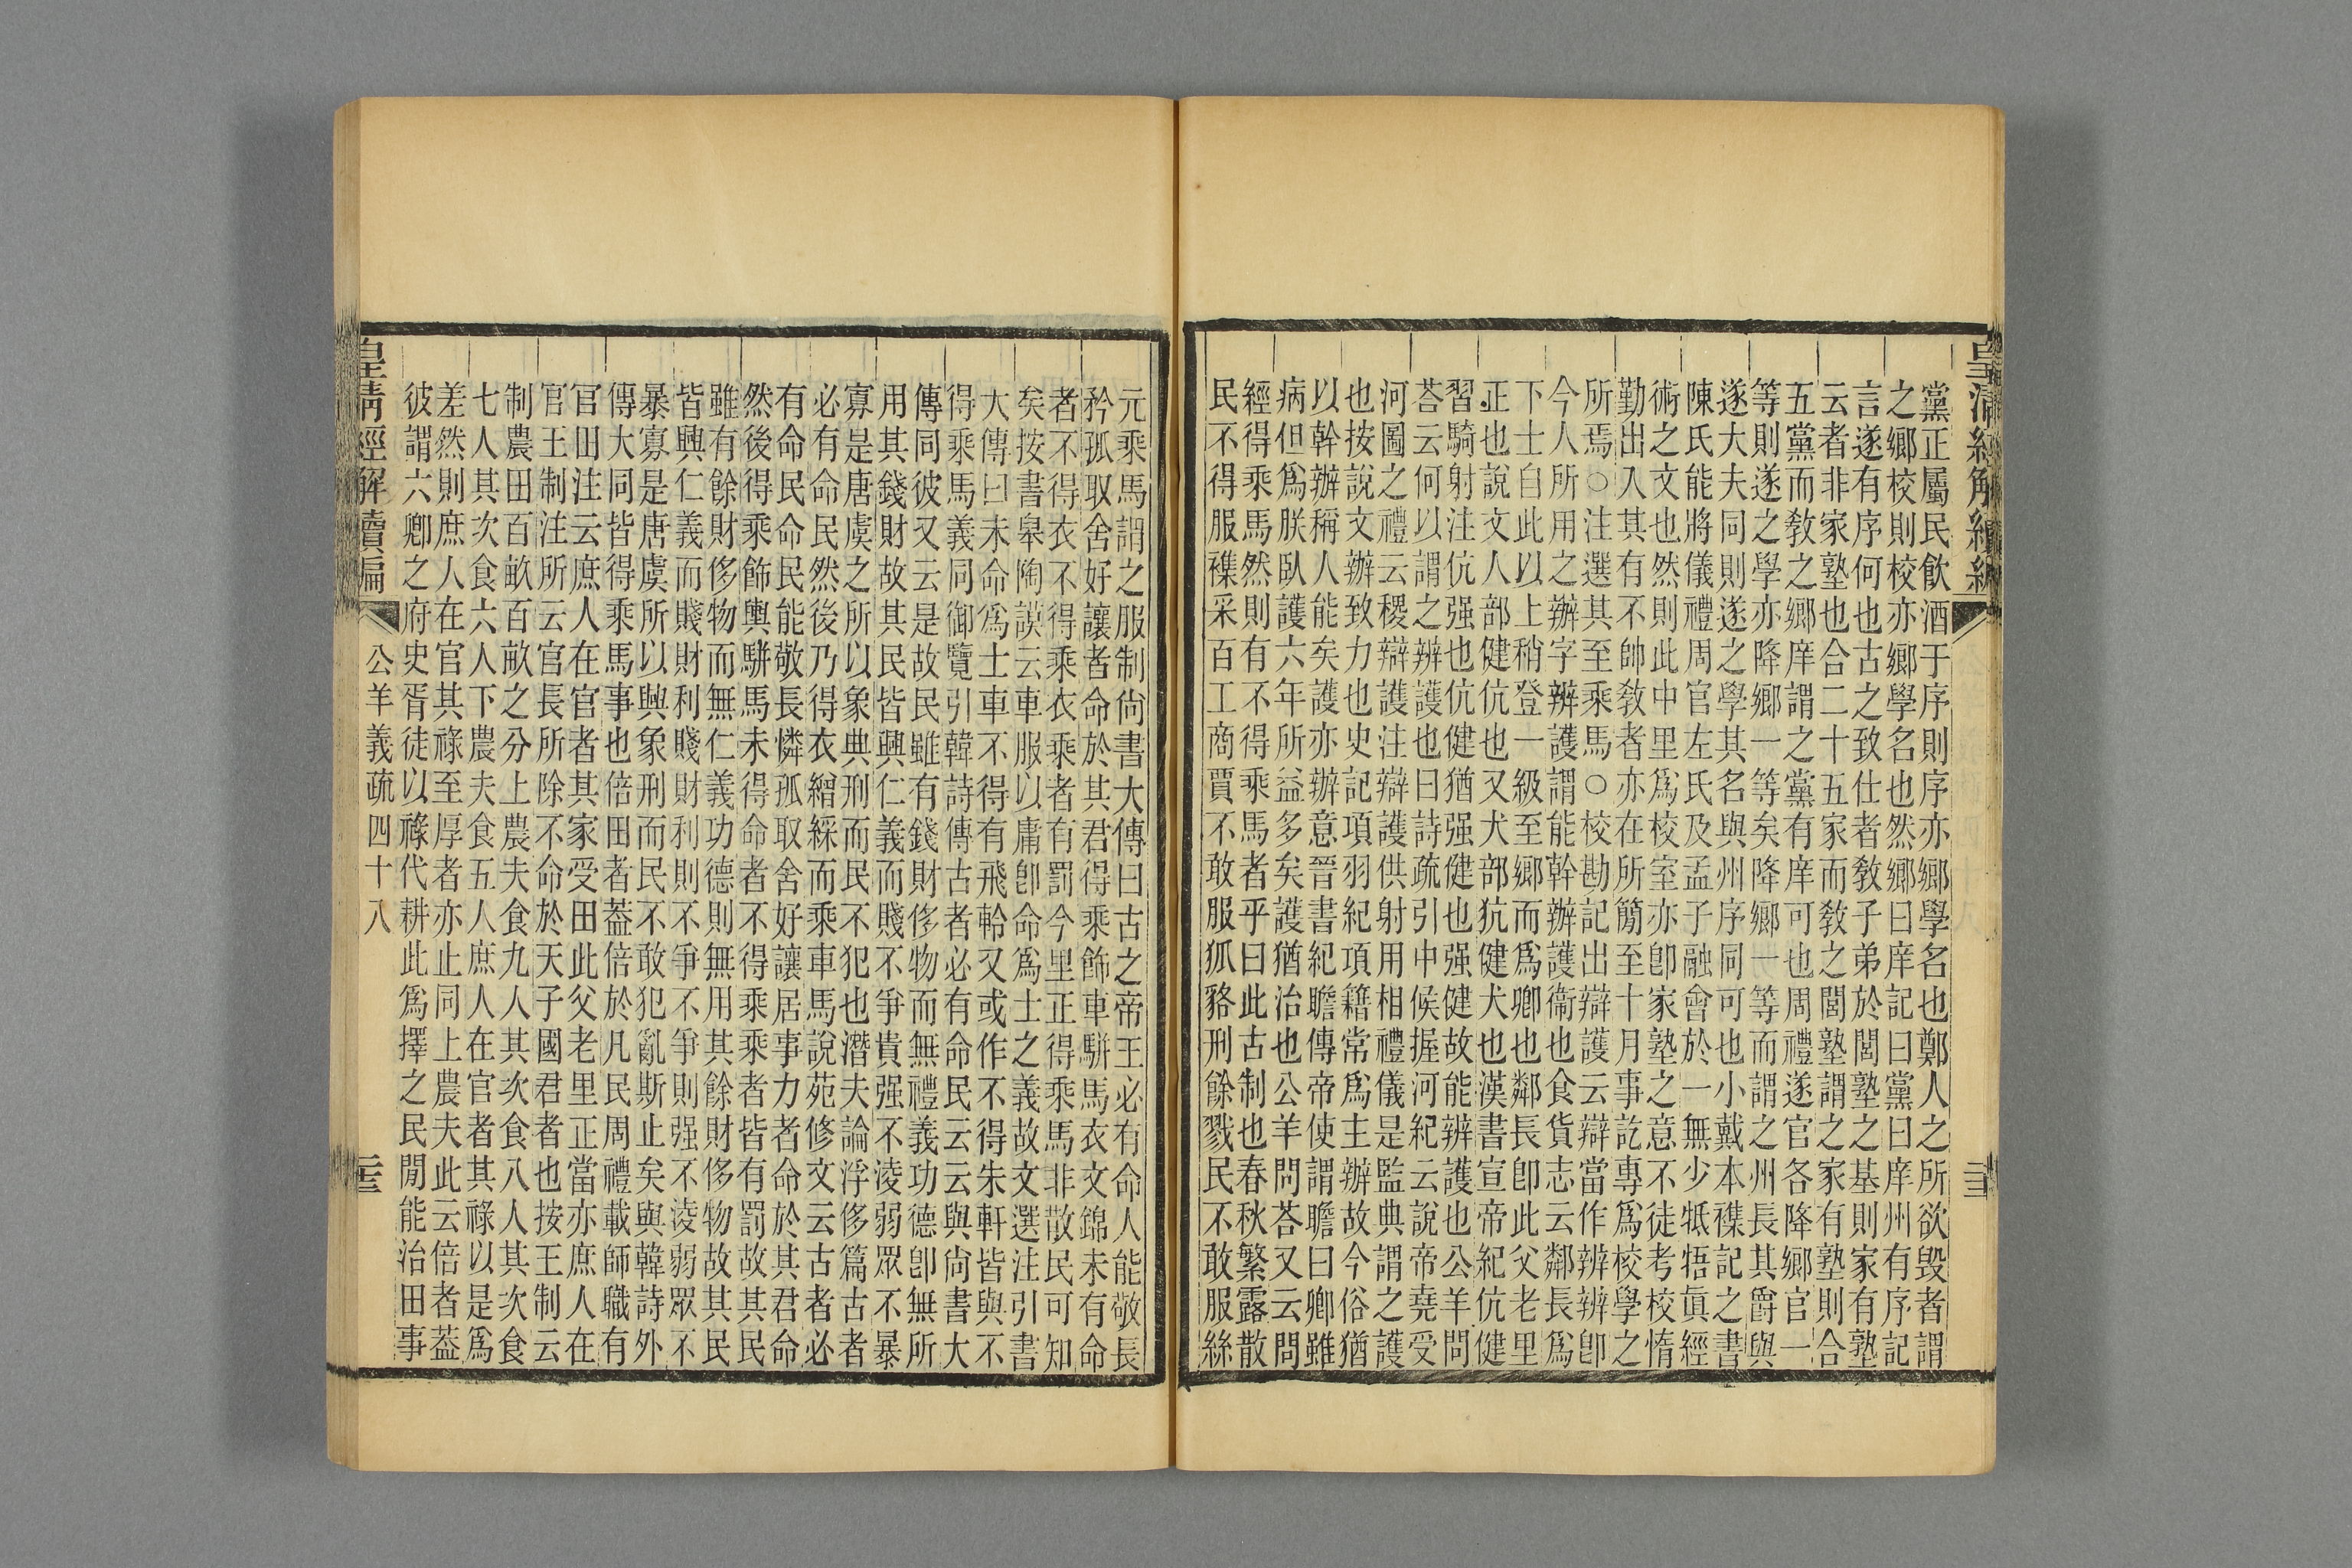 皇清經解續編
三三
黨正屬民飲酒于序則序亦鄉學名也鄭人之所欲毀者謂
之鄉校則校亦鄉學名也然鄉曰庠記曰黨曰庠州有序記
言遂有序何也古之致仕者敎子弟於閭塾之基則家有塾
云者非家塾也合二十五家而敎之閭塾謂之家有塾則合
五黨而敎之鄉庠謂之黨有庠可也周禮遂官各降鄉官一
等則遂之學亦降鄉一等矣降鄉一等而謂之州長其爵與
遂大夫同則遂之學其名與州序同可也小戴本襍記之書
陳氏能將儀禮周官左氏及孟子融會於一無少牴牾眞經
術之文也然則此中里爲校室亦卽家塾之意不徒考校惰
勤出入其有不帥敎者亦在所簡至十月事訖專爲校學之
所焉○注選其至乘馬○校勘記出辯護云辯當作辨辨卽
今人所用之辦字辨護謂能幹辦護衞也食貨志云鄰長爲
下士自此以上稍登一級至鄉而爲卿也鄰長卽此父老里
正也說文人部健伉也又犬部犺健犬也漢書宣帝紀伉健
習騎射注伉强也伉健猶强健也强健故能辨護也公羊問
荅云何以謂之辨護也曰詩疏引中候握河紀云說帝堯受
河圖之禮云稷辯護注辯護供射用相禮儀是監典謂之護
也按說文辦致力也史記項羽紀項籍常爲主辦故今俗猶
以幹辦稱人能矣護亦辦意晉書紀瞻傳帝使謂瞻曰卿雖
病但爲朕臥護六年所益多矣護猶治也公羊問荅又云問
經得乘馬然則有不得乘馬者乎曰此古制也春秋繁露散
民不得服襍采百工商賈不敢服狐貉刑餘戮民不敢服絲
元乘馬謂之服制尙書大傳曰古之帝王必有命人能敬長
矜孤取舍好讓者命於其君得乘飾車駢馬衣文錦未有命
者不得衣不得乘衣乘者有罰今里正得乘馬非散民可知
矣按書皋陶謨云車服以庸卽命爲士之義故文選注引書
大傳曰未命爲士車不得有飛軨又或作不得朱軒皆與不
得乘馬義同御覽引韓詩傳古者必有命民云云與尙書大
傳同彼又云是故民雖有錢財侈物而無禮義功德卽無所
用其錢財故其民皆興仁義而賤不爭貴强不淩弱眾不暴
寡是唐虞之所以象典刑而民不犯也潛夫論浮侈篇古者
必有命民然後乃得衣繒綵而乘車馬說苑修文云古者必
有命民命民能敬長憐孤取舍好讓居事力者命於其君命
然後得乘飾輿駢馬未得命者不得乘乘者皆有罰故其民
雖有餘財侈物而無仁義功德則無用其餘財侈物故其民
皆興仁義而賤財利賤財利則不爭不爭則强不淩弱眾不
暴寡是唐虞所以興象刑而民不敢犯亂斯止矣與韓詩外
傳大同皆得乘馬事也倍田者葢倍於凡民周禮載師職有
官田注云庶人在官者其家受田此父老里正當亦庶人在
官王制注所云官長所除不命於天子國君者也按王制云
制農田百畝百畝之分上農夫食九人其次食八人其次食
七人其次食六人下農夫食五人庶人在官者其祿以是爲
差然則庶人在官其祿至厚者亦止同上農夫此云倍者葢
彼謂六卿之府史胥徒以祿代耕此爲擇之民閒能治田事
皇淸經解續編
公羊義疏四十八
三三